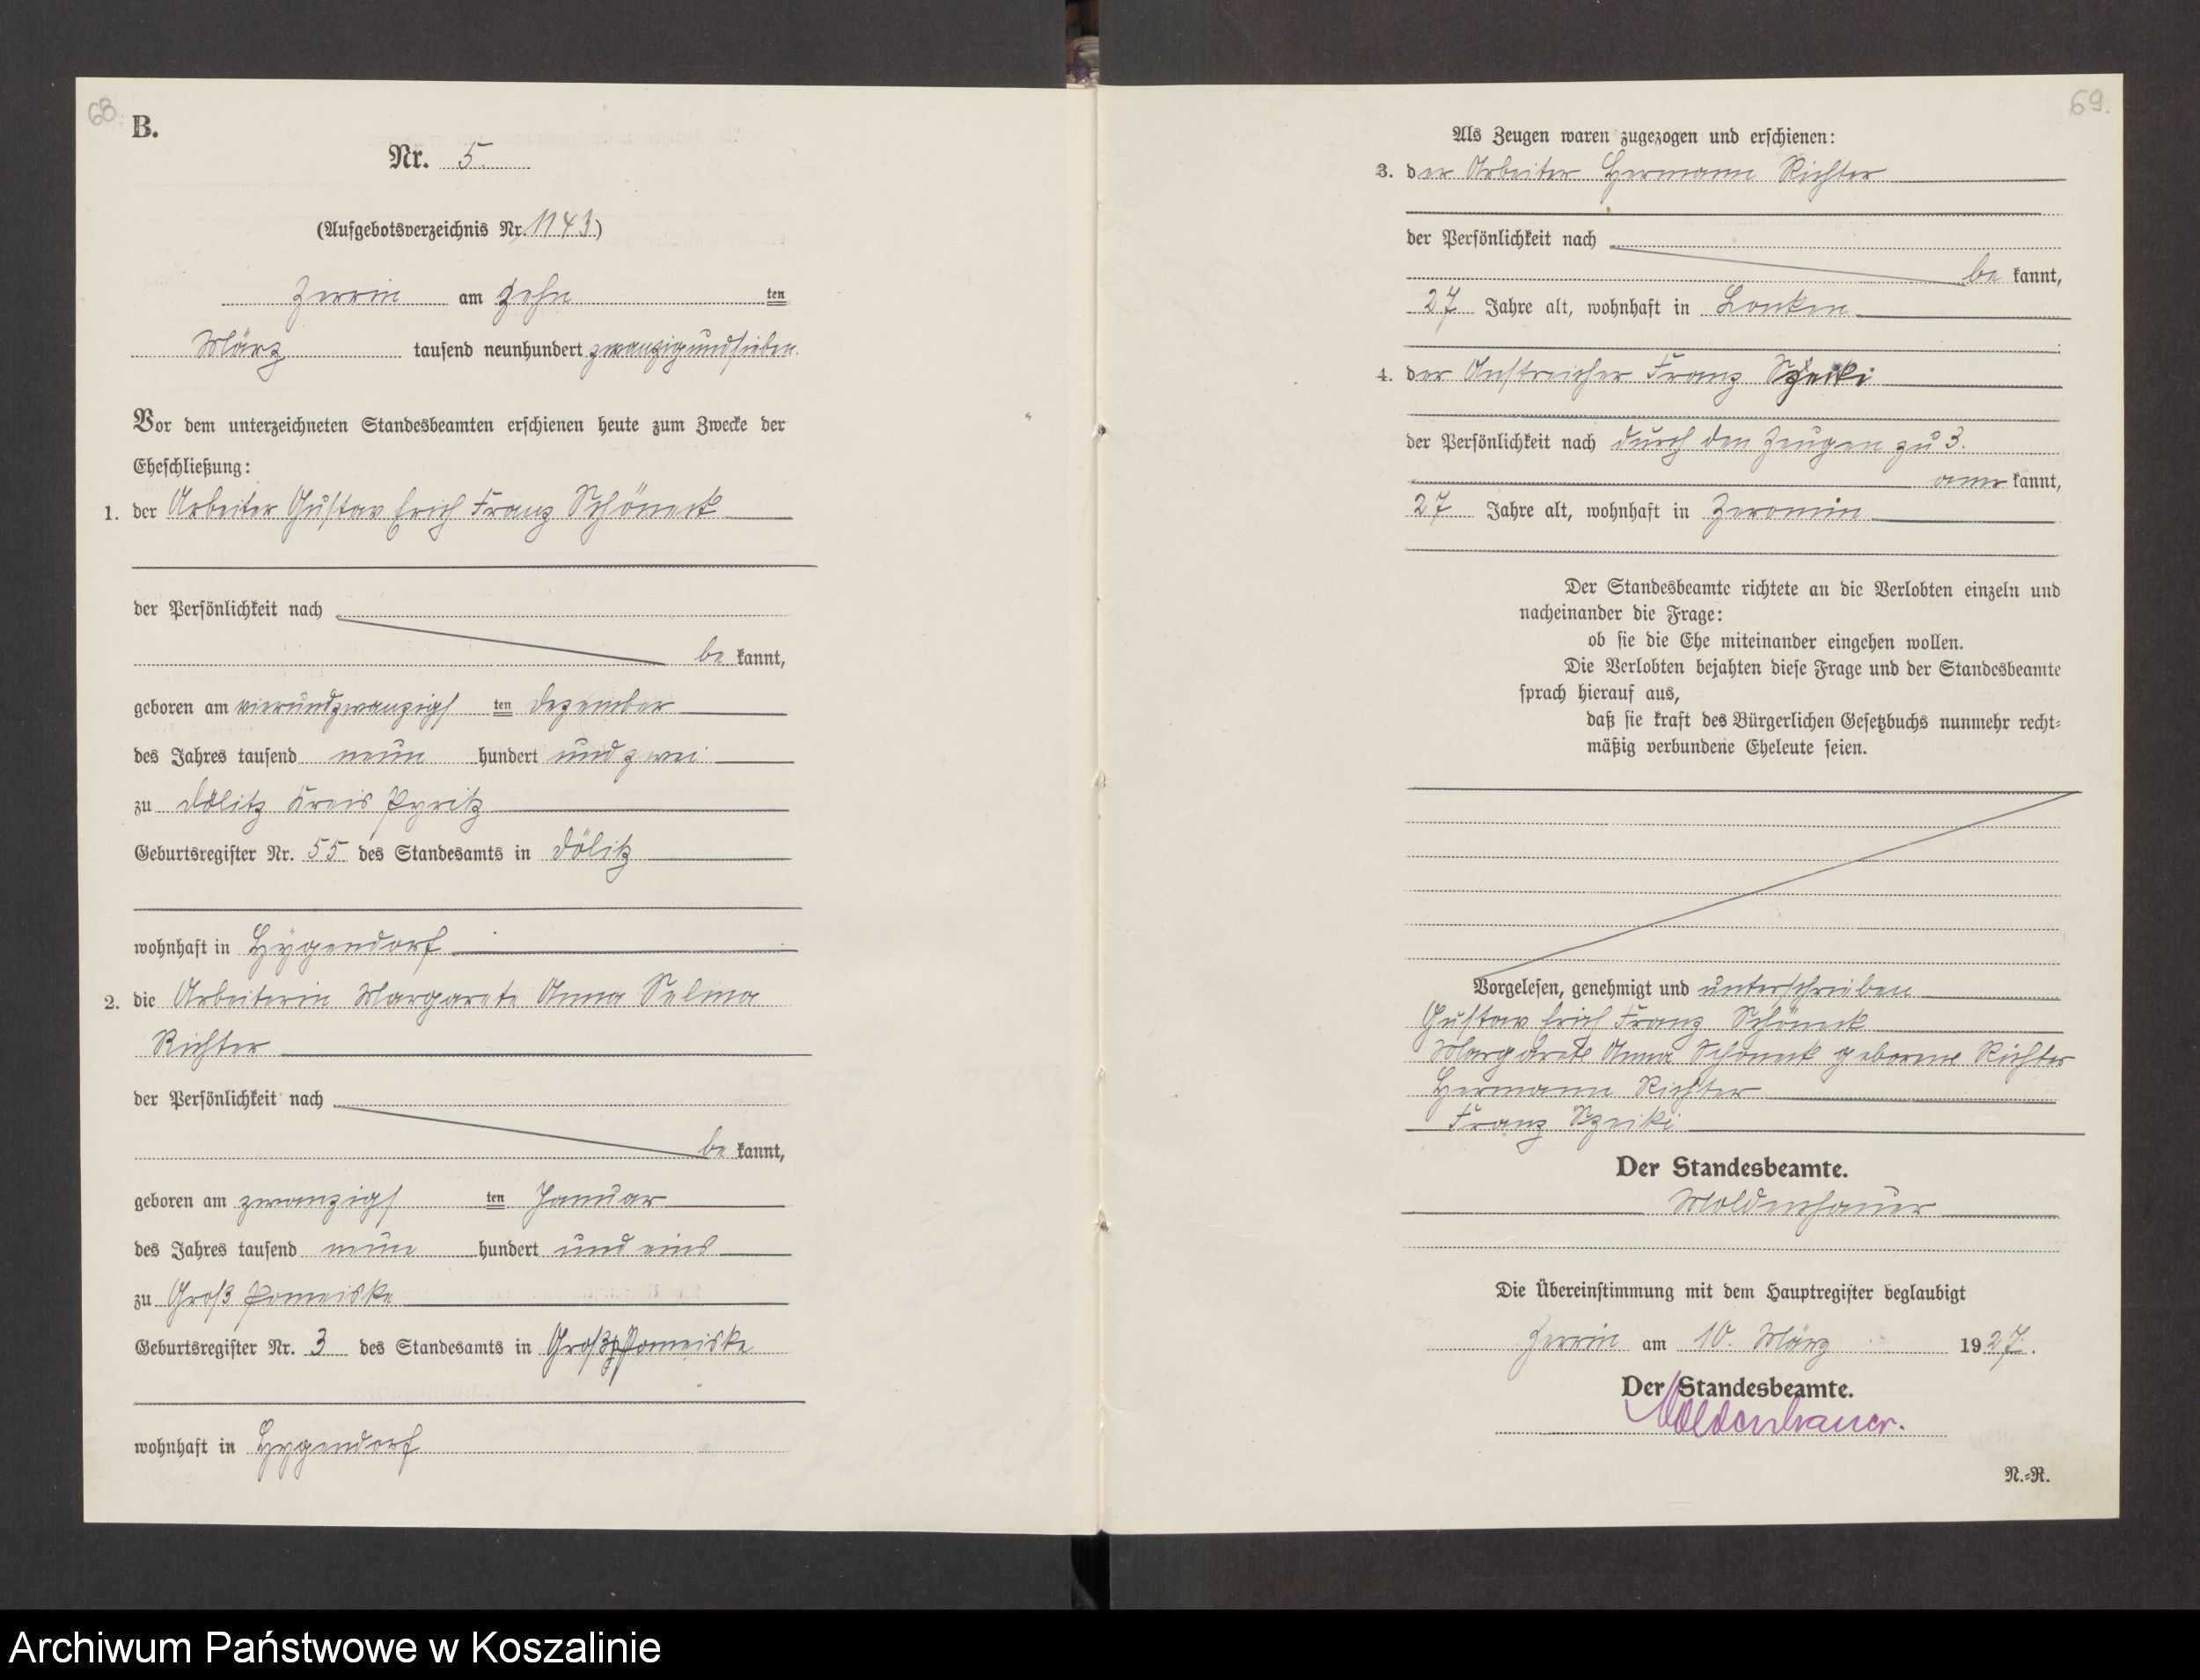 68.
B.
Nr. 5.
(Aufgebotsverzeichnis Nr. 1143)
Zerrin am zehn ten
März tausend neunhundert zwanzigundsieben.
Vor dem unterzeichneten Standesbeamten erschienen heute zum Zwecke der
Eheschließung:
1. der Arbeiter Gustav Erich Franz Schöneck
der Persönlichkeit nach
be kannt,
geboren am vierundzwanzigs ten Dezember
des Jahres tausend neun hundert und zwei
zu Dölitz Kreis Pyritz
Geburtsregister Nr. 55 des Standesamts in Dölitz
wohnhaft in Hygendorf
2. die Arbeiterin Margarete Anna Selma
Richter
der Persönlichkeit nach
be kannt,
geboren am zwanzigs ten Januar
des Jahres tausend neun hundert und eins
zu Groß Pomeiske
Geburtsregister Nr. 3 des Standesamts in Groß Pomeiske
wohnhaft in Hygendorf
69.
Als Zeugen waren zugezogen und erschienen:
3. der Arbeiter Hermann Richter
der Persönlichkeit nach
be kannt,
27 Jahre alt, wohnhaft in Lonken
4. der Anstreicher Franz
der Persönlichkeit nach durch den Zeugen zu 3.
aner kannt,
27 Jahre alt, wohnhaft in Zeromin
Der Standesbeamte richtete an die Verlobten einzeln und
nacheinander die Frage:
ob sie die Ehe miteinander eingehen wollen.
Die Verlobten bejahten diese Frage und der Standesbeamte
sprach hierauf aus,
daß sie kraft des Bürgerlichen Gesetzbuchs nunmehr recht-
mäßig verbundene Eheleute seien.
Vorgelesen, genehmigt und unterschrieben
Gustav Erich Franz Schöneck
Margarete Anna Schöneck geborene Richter
Hermann Richter
Franz
Der Standesbeamte.
Moldenhauer
Die Übereinstimmung mit dem Hauptregister beglaubigt
Zerrin am 10. März 1927.
Der Standesbeamte.
Moldenhauer.
N.-R.
Archiwum Państwowe w Koszalinie